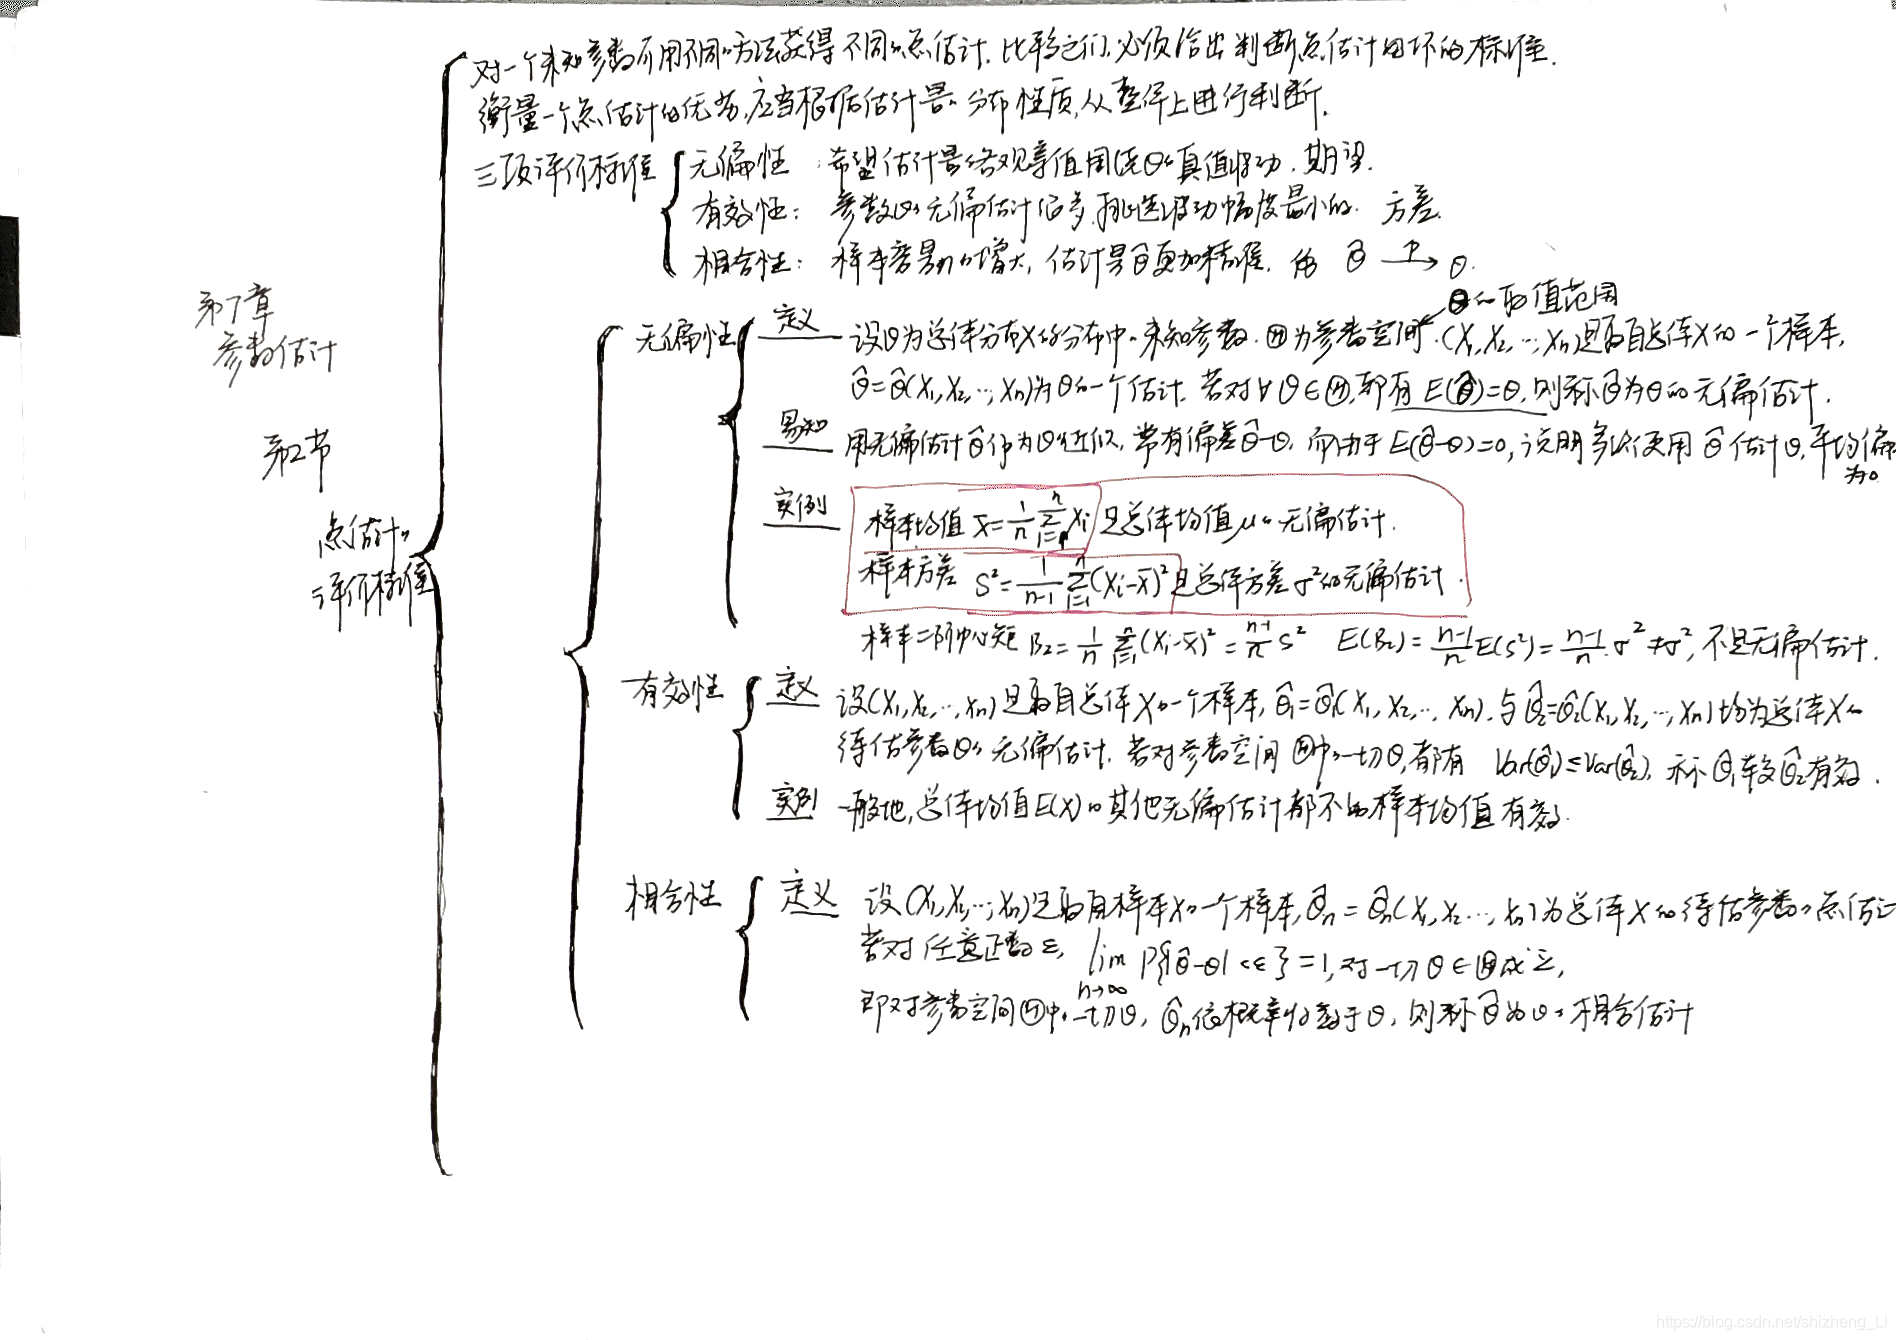 对一个未知参数可用不同的方法获得不同的点估计.比较它们,必须给出判断点估计好坏的标准.
衡量一个点估计的优劣,应当根据估计量的分布性质,从整体上进行判断.
三项评价标准
无偏性:希望估计量的各观察值围绕θ的真值波动.期望.
有效性:参数θ的无偏估计很多,挑选波动幅度最小的. 方差.
相合性:样本容量n的增大,估计量θ̂更加精确. θ̂ —P→ θ.
第7章
参数估计
第2节
点估计的
评价标准
无偏性
θ的取值范围
定义 设θ为总体分布X的分布中的未知参数.Ⓗ为参数空间.(X₁,X₂,…,Xn)是取自总体X的一个样本,
θ̂=θ̂(X₁,X₂,…,Xn)为θ的一个估计.若对∀θ∈Ⓗ,都有E(θ̂)=θ,则称θ̂为θ的无偏估计.
易知 用无偏估计θ̂作为θ的近似,常有偏差θ̂-θ,而由于E(θ̂-θ)=0,说明多次使用θ̂估计θ,平均偏
为0
实例 样本均值 X̄=1/n Σᵢ₌₁ⁿ Xi 是总体均值μ的无偏估计.
样本方差 S²=1/(n-1) Σᵢ₌₁ⁿ(Xi-X̄)² 是总体方差σ²的无偏估计.
样本二阶中心矩 B₂=1/n Σᵢ₌₁ⁿ(Xi-X̄)²=(n-1)/n S² E(B₂)=(n-1)/n E(S²)=(n-1)/n σ²≠σ²,不是无偏估计.
有效性
定义 设(X₁,X₂,…,Xn)是取自总体X的一个样本,θ̂₁=θ̂₁(X₁,X₂,…,Xn).与θ̂₂=θ̂₂(X₁,X₂,…,Xn)均为总体X的
待估参数θ的无偏估计.若对参数空间Ⓗ中的一切θ,都有 Var(θ̂₁)≤Var(θ̂₂),称θ̂₁较θ̂₂有效.
实例 一般地,总体均值E(X)的其他无偏估计都不如样本均值有效.
相合性
定义 设(X₁,X₂,…,Xn)是取自样本X的一个样本,θ̂n=θ̂n(X₁,X₂,…,Xn)为总体X的待估参数的点估计
若对任意正数ε, lim n→∞ P{|θ̂-θ|<ε}=1,对一切θ∈Ⓗ成立,
即对参数空间Ⓗ中的一切θ,θ̂n依概率收敛于θ,则称θ̂为θ的相合估计
https://blog.csdn.net/shizheng_Li